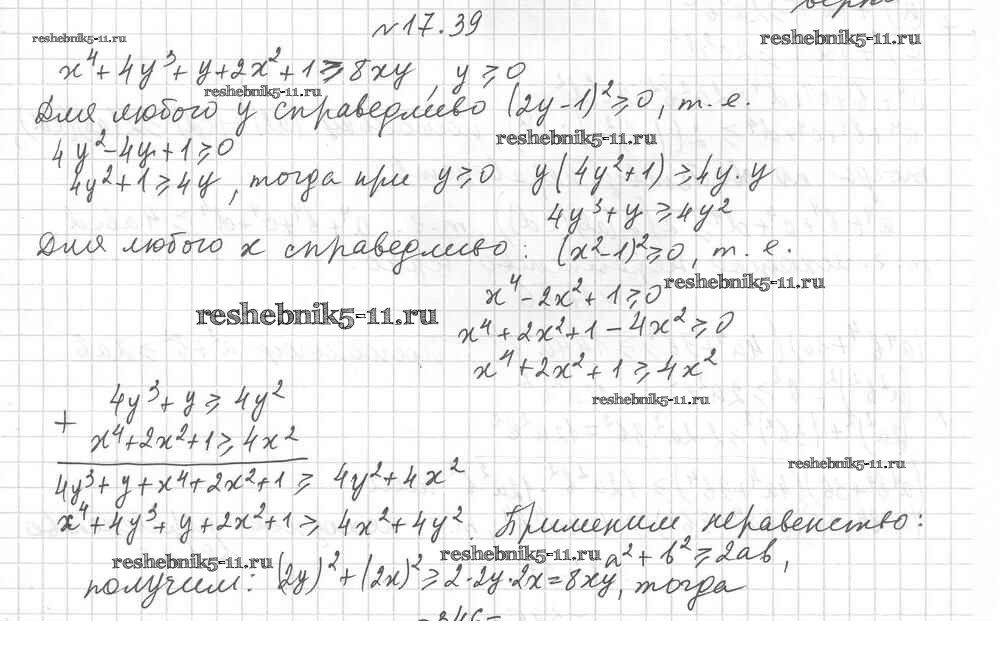 №17.39
reshebnik5-11.ru
reshebnik5-11.ru
x⁴+4y³+y+2x²+1≥8xy, y≥0
reshebnik5-11.ru
Для любого y справедливо (2y-1)²≥0, т.е.
reshebnik5-11.ru
4y²-4y+1≥0
4y²+1≥4y, тогда при y≥0 y(4y²+1)≥4y·y
4y³+y≥4y²
Для любого x справедливо: (x²-1)²≥0, т.е.
reshebnik5-11.ru
x⁴-2x²+1≥0
reshebnik5-11.ru
x⁴+2x²+1-4x²≥0
x⁴+2x²+1≥4x²
4y³+y≥4y²
reshebnik5-11.ru
+
x⁴+2x²+1≥4x²
reshebnik5-11.ru
4y³+y+x⁴+2x²+1≥ 4y²+4x²
x⁴+4y³+y+2x²+1≥4x²+4y². Применим неравенство:
reshebnik5-11.ru reshebnik5-11.ru a²+b²≥2ab,
получим: (2y)²+(2x)²≥2·2y·2x=8xy, тогда